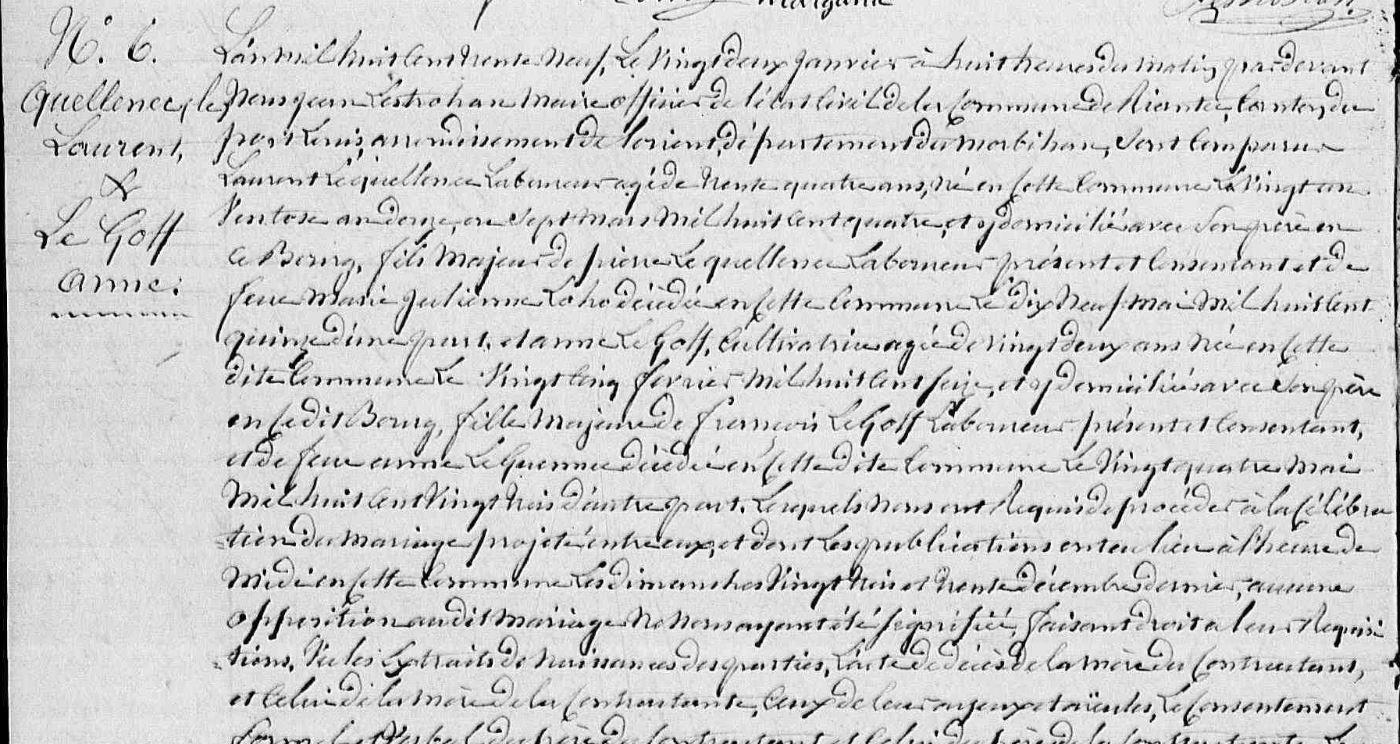 N.° 6.
Quellence, le
Laurent,
&
Le Goff
anne.
L'an mil huit cent trente neuf, Le vingt deux Janvier à huit heures du matin, pardevant
Nous jean Lestrohan Maire officier de l'état civil de la Commune de Riantec, Canton du
port Louis, arrondissement de Lorient, département du Morbihan, sont comparus
Laurent Le quellence Laboureur agé de trente quatre ans, né en cette Commune Le Vingt
Ventose an douze, ou Sept Mars Mil huit cent quatre, et y domicilié avec son père en
ce Bourg, fils Majeur de pierre Le quellence Laboureur présent et consentant et de
feue Marie julienne Loho décédée en cette Commune Le dix Neuf Mai Mil huit cent
quinze d'une part, et anne Le Goff, Cultivatrice agée de vingt deux ans Née en cette
dite Commune Le Vingt Cinq fevrier Mil huit cent seize, et y domiciliée avec son père
en cedit Bourg, fille Majeure de françois Le Goff Laboureur présent et consentant,
et de feue anne Le Guennec décédée en cette dite Commune Le Vingt quatre Mai
Mil huit cent Vingt trois d'autre part. Lesquels Nous ont Requis de procéder à la Célébra
tion du Mariage projeté entre eux, et dont Les publications ont eu lieu à l'heure de
Midi en cette Commune Les dimanches Vingt trois et trente décembre dernier, aucune
opposition audit Mariage Ne Nous ayant été signifiée, faisant droit a leur Requisi
tions, Vu les Extraits de Naissances des parties, L'acte de décès de la mère du Contractant,
et Celui de la mère de la Contractante, Ceux de leurs ayeux et aïeules, Le Consentement
formel et Verbal du père du Contractant et Celui du père de la Contractante